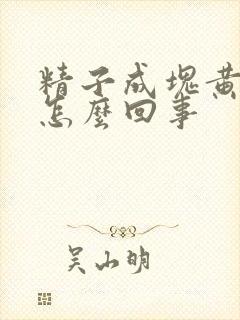 精子成塊黃
怎麼回事
吴山明